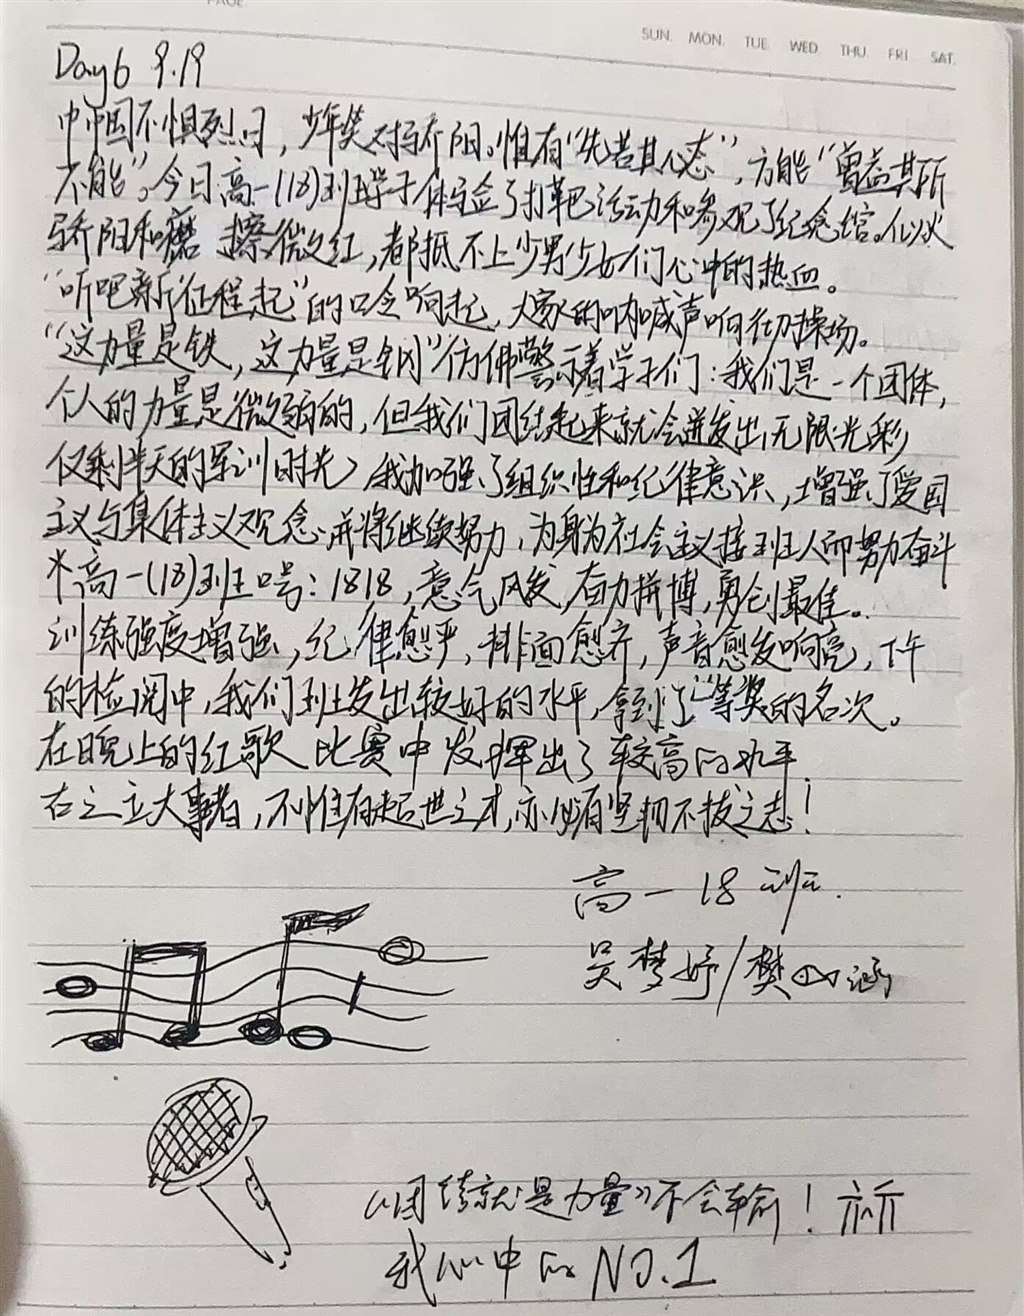 PAGE
SUN. MON. TUE. WED. THU. FRI. SAT.
Day6 9.19
中国不惧烈日，少年笑对骄阳。惟有“先苦其心态”，方能“曾益其所
不能”。今日高一(18)班学子体验了打靶活动和参观了纪念馆。似火
骄阳和磨擦微红，都抵不上少男少女们心中的热血。
“听吧新征程起”的口令响起，大家的呐喊声响彻操场。
“这力量是铁，这力量是钢”仿佛警示着学子们：我们是一个团体，
个人的力量是微弱的，但我们团结起来就会迸发出无限光彩
仅剩半天的军训时光，我加强了组织性和纪律意识，增强了爱国
主义与集体主义观念，并将继续努力，为身为社会主义接班人而努力奋斗
*高一(18)班口号：1818，意气风发，奋力拼博，勇创最佳。
训练强度增强，纪律愈严，排面愈齐，声音愈发响亮，下午
的检阅中，我们班发出较好的水平，拿到了二等奖的名次。
在晚上的红歌比赛中发挥出了较高的水平
古之立大事者，不惟有超世之才，亦必有坚韧不拔之志！
高一18班.
吴梦妤/樊涵
《团结就是力量》不会输！
我心中的NO.1